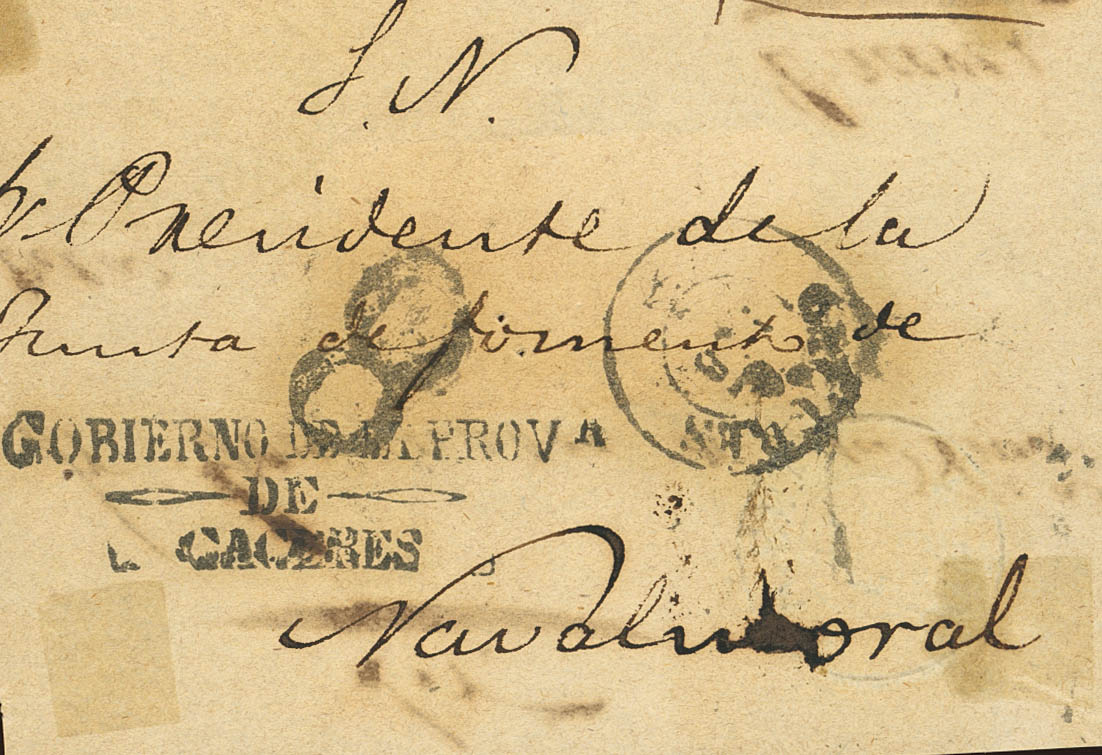 S. N.
Presidente de la
Junta de fomento de
GOBIERNO DE LA PROVA
DE
CACERES
Navalmoral